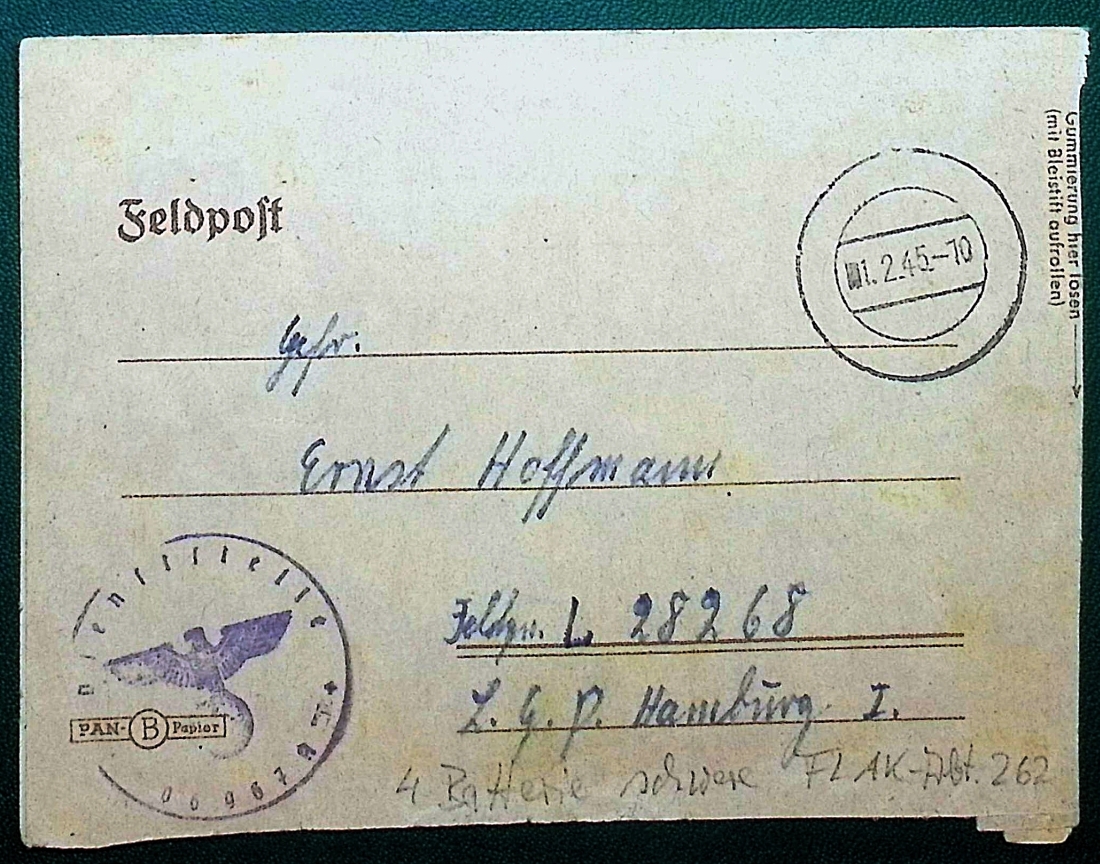 Feldpost
1.2.45.-10
Gummierung hier lösen
(mit Bleistift aufrollen)
Gefr.
Ernst Hoffmann
Feldpn. L 28268
L. G. P. Hamburg I.
PAN- B Papier
4 Batterie schwere FLAK-Abt. 262